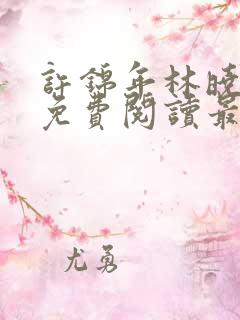 許錦年林曉
免費閱讀最
尤勇